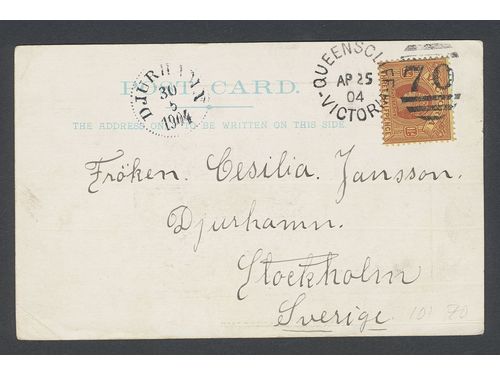 POST CARD.
THE ADDRESS ONLY TO BE WRITTEN ON THIS SIDE
DJURHAMN
30
5
1904
QUEENSCLIFF
AP 25
04
VICTORIA
70
Fröken. Cesilia. Jansson.
Djurhamn.
Stockholm
Sverige